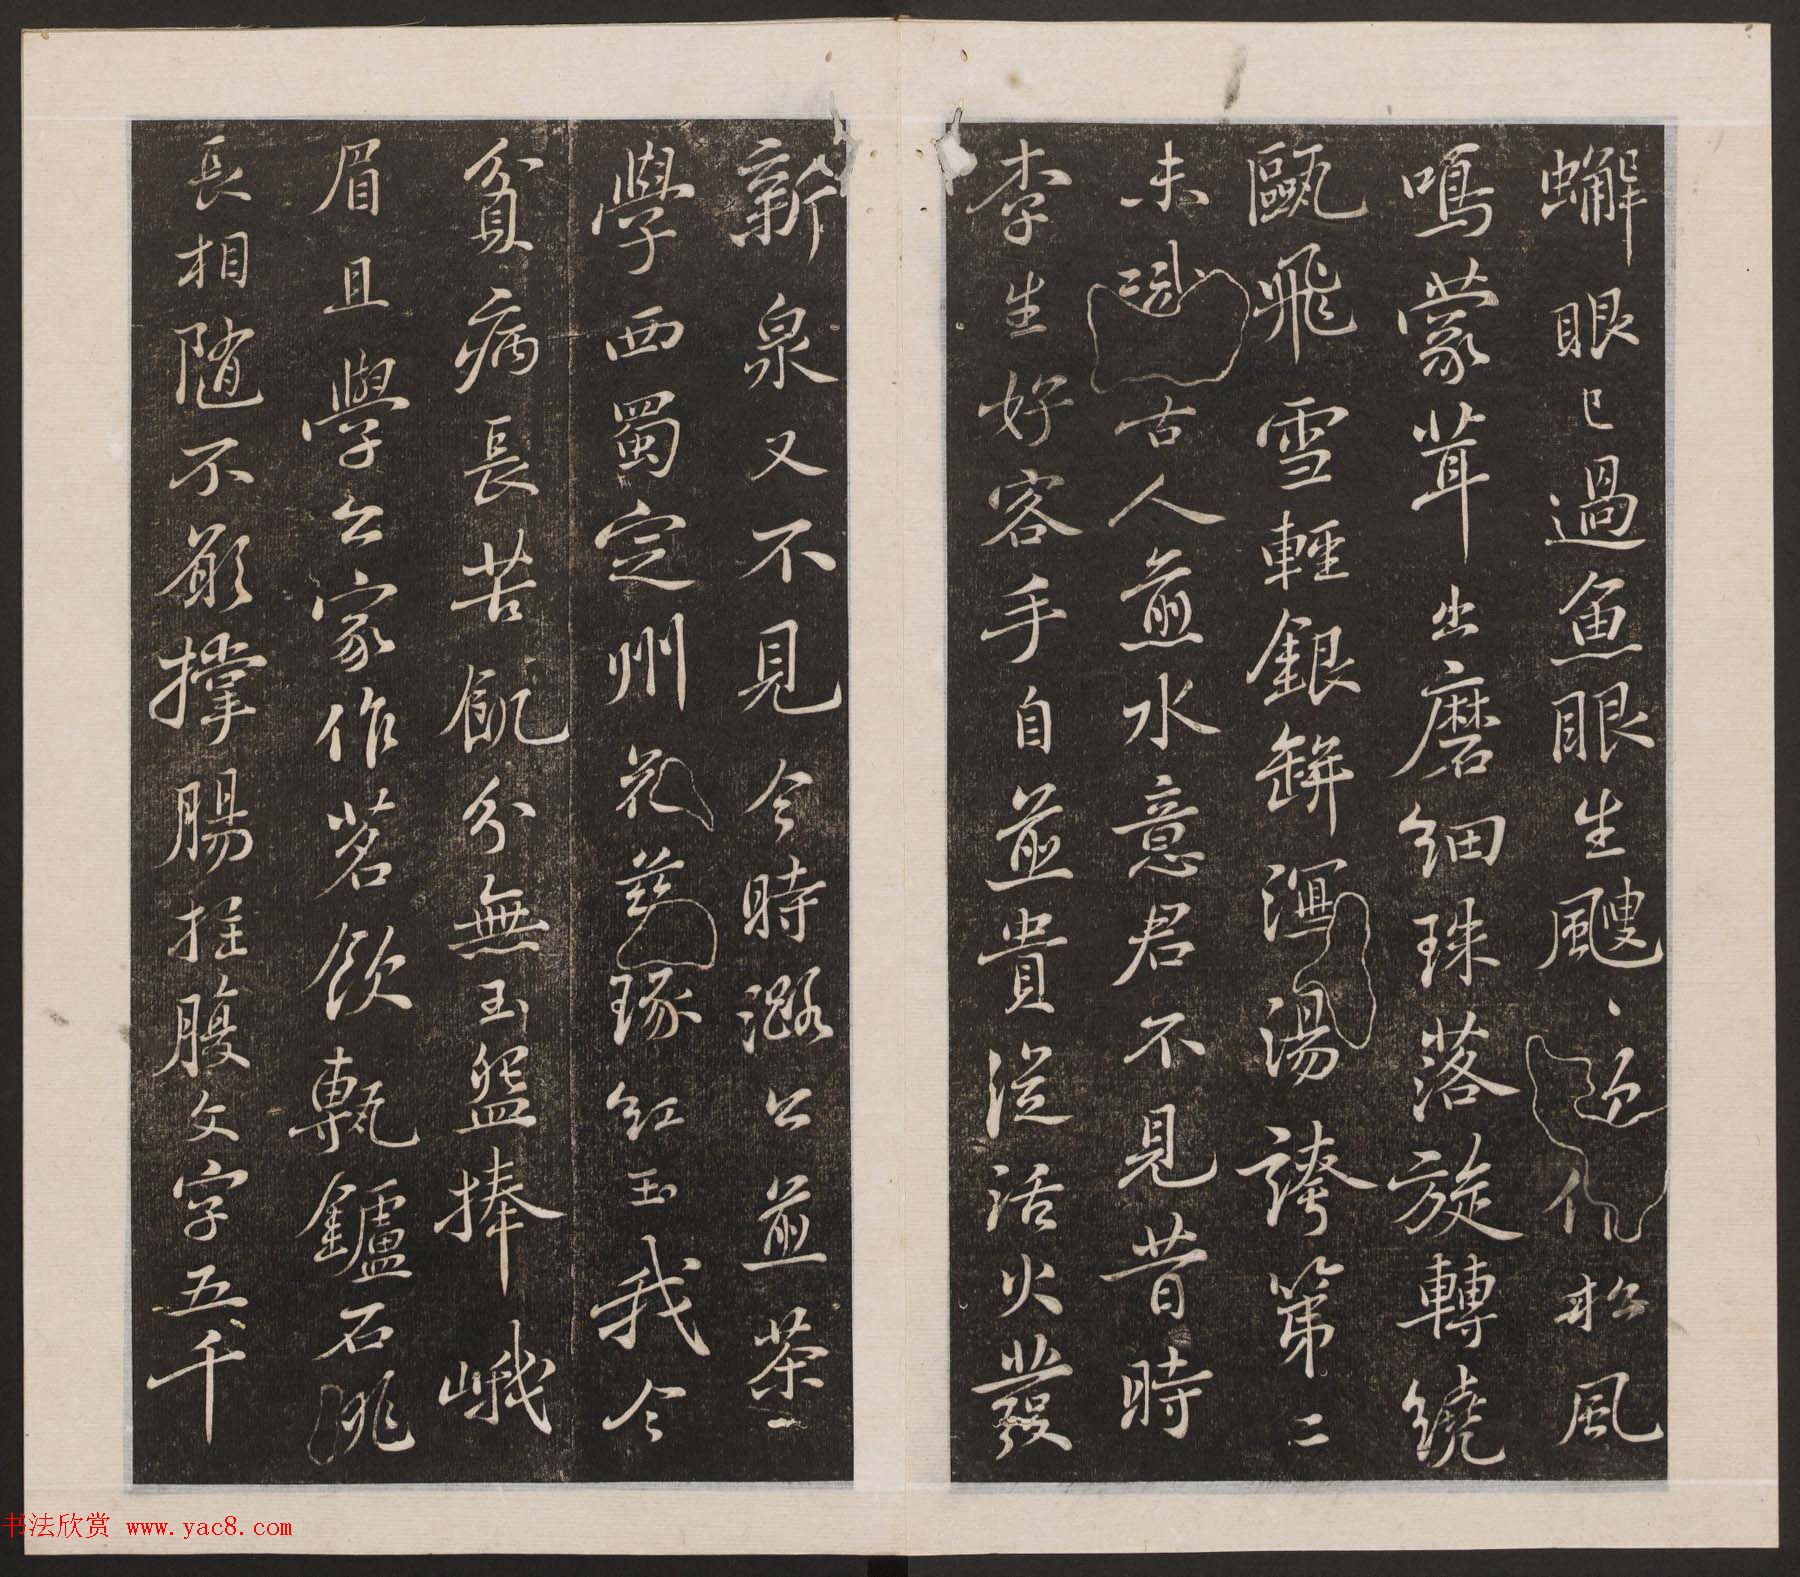 蠏眼已過魚眼生颼〻欲作松風
鳴蒙茸出磨細珠落旋轉繞
甌飛雪輕銀缾瀉湯誇第二
未識古人煎水意君不見昔時
李生好客手自煎貴從活火發
新泉又不見今時潞公煎茶
學西蜀定州花瓷琢紅玉我今
貧病長苦飢分無玉盌捧峨
眉且學公家作茗飲塼鑪石銚
長相隨不願撐腸拄腹文字五千
书法欣赏 www.yac8.com